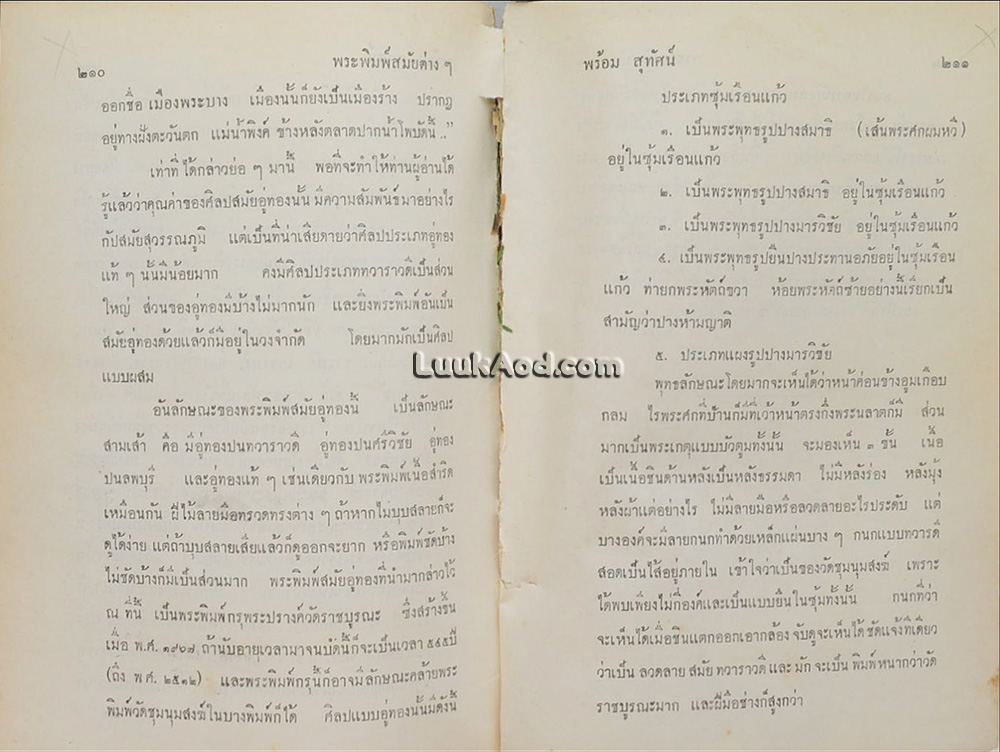 ๒๑๐ พระพิมพ์สมัยต่าง ๆ
ออกชื่อ เมืองพระบาง เมืองนั้นก็ยังเป็นเมืองร้าง ปรากฏ
อยู่ทางฝั่งตะวันตก แม่น้ำพิงค์ ข้างหลังตลาดปากน้ำโพบัดนี้..”
เท่าที่ได้กล่าวย่อ ๆ มานี้ พอที่จะทำให้ท่านผู้อ่านได้
รู้แล้วว่าคุณค่าของศิลปสมัยอู่ทองนั้น มีความสัมพันธ์มาอย่างไร
กับสมัยสุวรรณภูมิ แต่เป็นที่น่าเสียดายว่าศิลปประเภทอู่ทอง
แท้ ๆ นั้นมีน้อยมาก คงมีศิลปประเภททวาราวดีเป็นส่วน
ใหญ่ ส่วนของอู่ทองมีบ้างไม่มากนัก และยิ่งพระพิมพ์อันเป็น
สมัยอู่ทองด้วยแล้วก็มีอยู่ในวงจำกัด โดยมากมักเป็นศิลป
แบบผสม
อันลักษณะของพระพิมพ์สมัยอู่ทองนี้ เป็นลักษณะ
สามเส้า คือ มีอู่ทองปนทวาราวดี อู่ทองปนศรีวิชัย อู่ทอง
ปนลพบุรี และอู่ทองแท้ ๆ เช่นเดียวกับ พระพิมพ์เนื้อสำริด
เหมือนกัน ฝีไม้ลายมือทรวดทรงต่าง ๆ ถ้าหากไม่บุบสลายก็จะ
ดูได้ง่าย แต่ถ้าบุบสลายเสียแล้วก็ดูออกจะยาก หรือพิมพ์ชัดบ้าง
ไม่ชัดบ้างก็มีเป็นส่วนมาก พระพิมพ์สมัยอู่ทองที่นำมากล่าวไว้
ณ ที่นี้ เป็นพระพิมพ์กรุพระปรางค์วัดราชบูรณะ ซึ่งสร้างขึ้น
เมื่อ พ.ศ. ๑๙๖๗ ถ้านับอายุเวลามาจนบัดนี้ก็จะเป็นเวลา ๕๔๕ปี
(ถึง พ.ศ. ๒๕๑๒) และพระพิมพ์กรุนี้ก็อาจมีลักษณะคล้ายพระ
พิมพ์วัดชุมนุมสงฆ์ในบางพิมพ์ก็ได้ ศิลปแบบอู่ทองนั้นมีดังนี้
พร้อม สุทัศน์ ๒๑๑
ประเภทซุ้มเรือนแก้ว
๑. เป็นพระพุทธรูปปางสมาธิ (เส้นพระศกผมหวี)
อยู่ในซุ้มเรือนแก้ว
๒. เป็นพระพุทธรูปปางสมาธิ อยู่ในซุ้มเรือนแก้ว
๓. เป็นพระพุทธรูปปางมารวิชัย อยู่ในซุ้มเรือนแก้ว
๔. เป็นพระพุทธรูปยืนปางประทานอภัยอยู่ในซุ้มเรือน
แก้ว ท่ายกพระหัตถ์ขวา ห้อยพระหัตถ์ซ้ายอย่างนี้เรียกเป็น
สามัญว่าปางห้ามญาติ
๕. ประเภทแผงรูปปางมารวิชัย
พุทธลักษณะโดยมากจะเห็นได้ว่าหน้าค่อนข้างอูมเกือบ
กลม ไรพระศกที่บ้านก็มีที่เว้าหน้าตรงกึ่งพระนลาตก็มี ส่วน
มากเป็นพระเกตุแบบบัวตูมทั้งนั้น จะมองเห็น ๓ ชั้น เนื้อ
เป็นเนื้อชินด้านหลังเป็นหลังธรรมดา ไม่มีหลังร่อง หลังมุ้ง
หลังผ้าแต่อย่างไร ไม่มีลายมือหรือลวดลายอะไรประดับ แต่
บางองค์จะมีลายกนกทำด้วยเหล็กแผ่นบาง ๆ กนกแบบทวารดี
สอดเป็นไส้อยู่ภายใน เข้าใจว่าเป็นของวัดชุมนุมสงฆ์ เพราะ
ได้พบเพียงไม่กี่องค์และเป็นแบบยืนในซุ้มทั้งนั้น กนกที่ว่า
จะเห็นได้เมื่อชินแตกออกเอากล้อง จับดูจะเห็นได้ ชัดแจ้งทีเดียว
ว่าเป็น ลวดลาย สมัย ทวาราวดี และ มัก จะเป็น พิมพ์ หนากว่าวัด
ราชบูรณะมาก และฝีมือช่างก็สูงกว่า
LuukAod.com